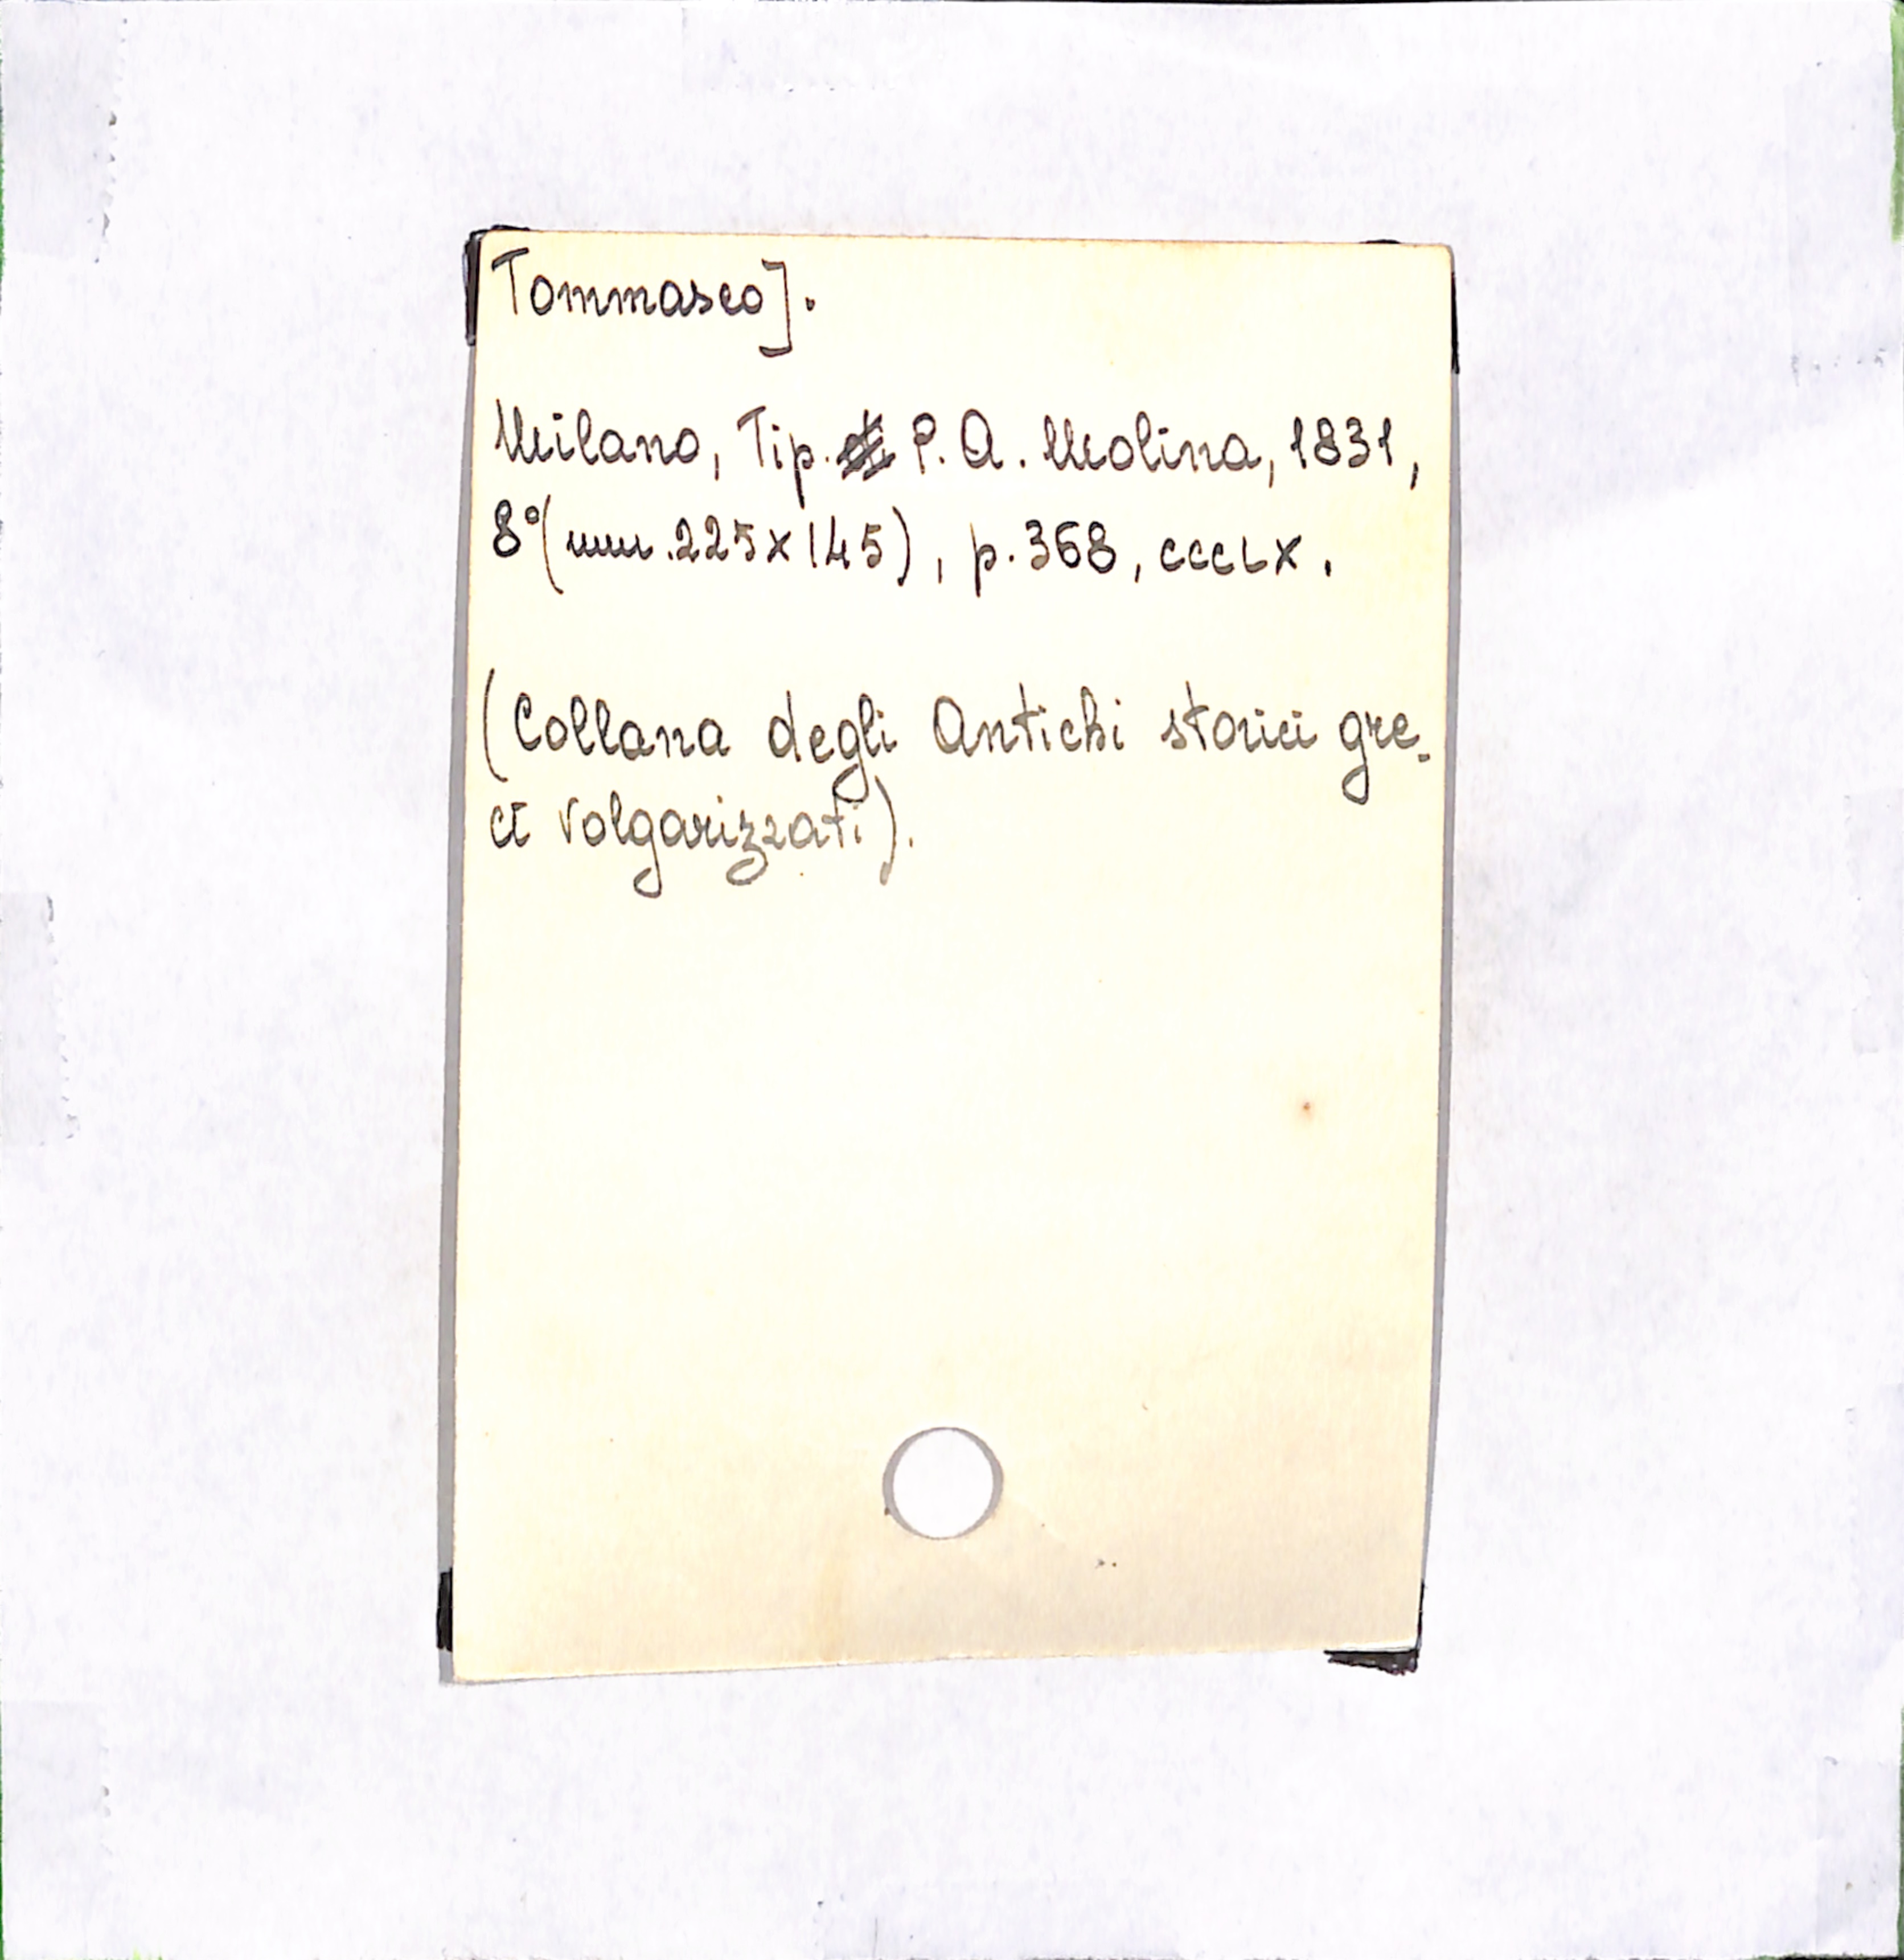 Tommaseo].
Milano, Tip. P. A. Molina, 1831,
8° (mm. 225x145), p. 368, CCCLX.
(Collana degli Antichi storici gre-
ci volgarizzati).